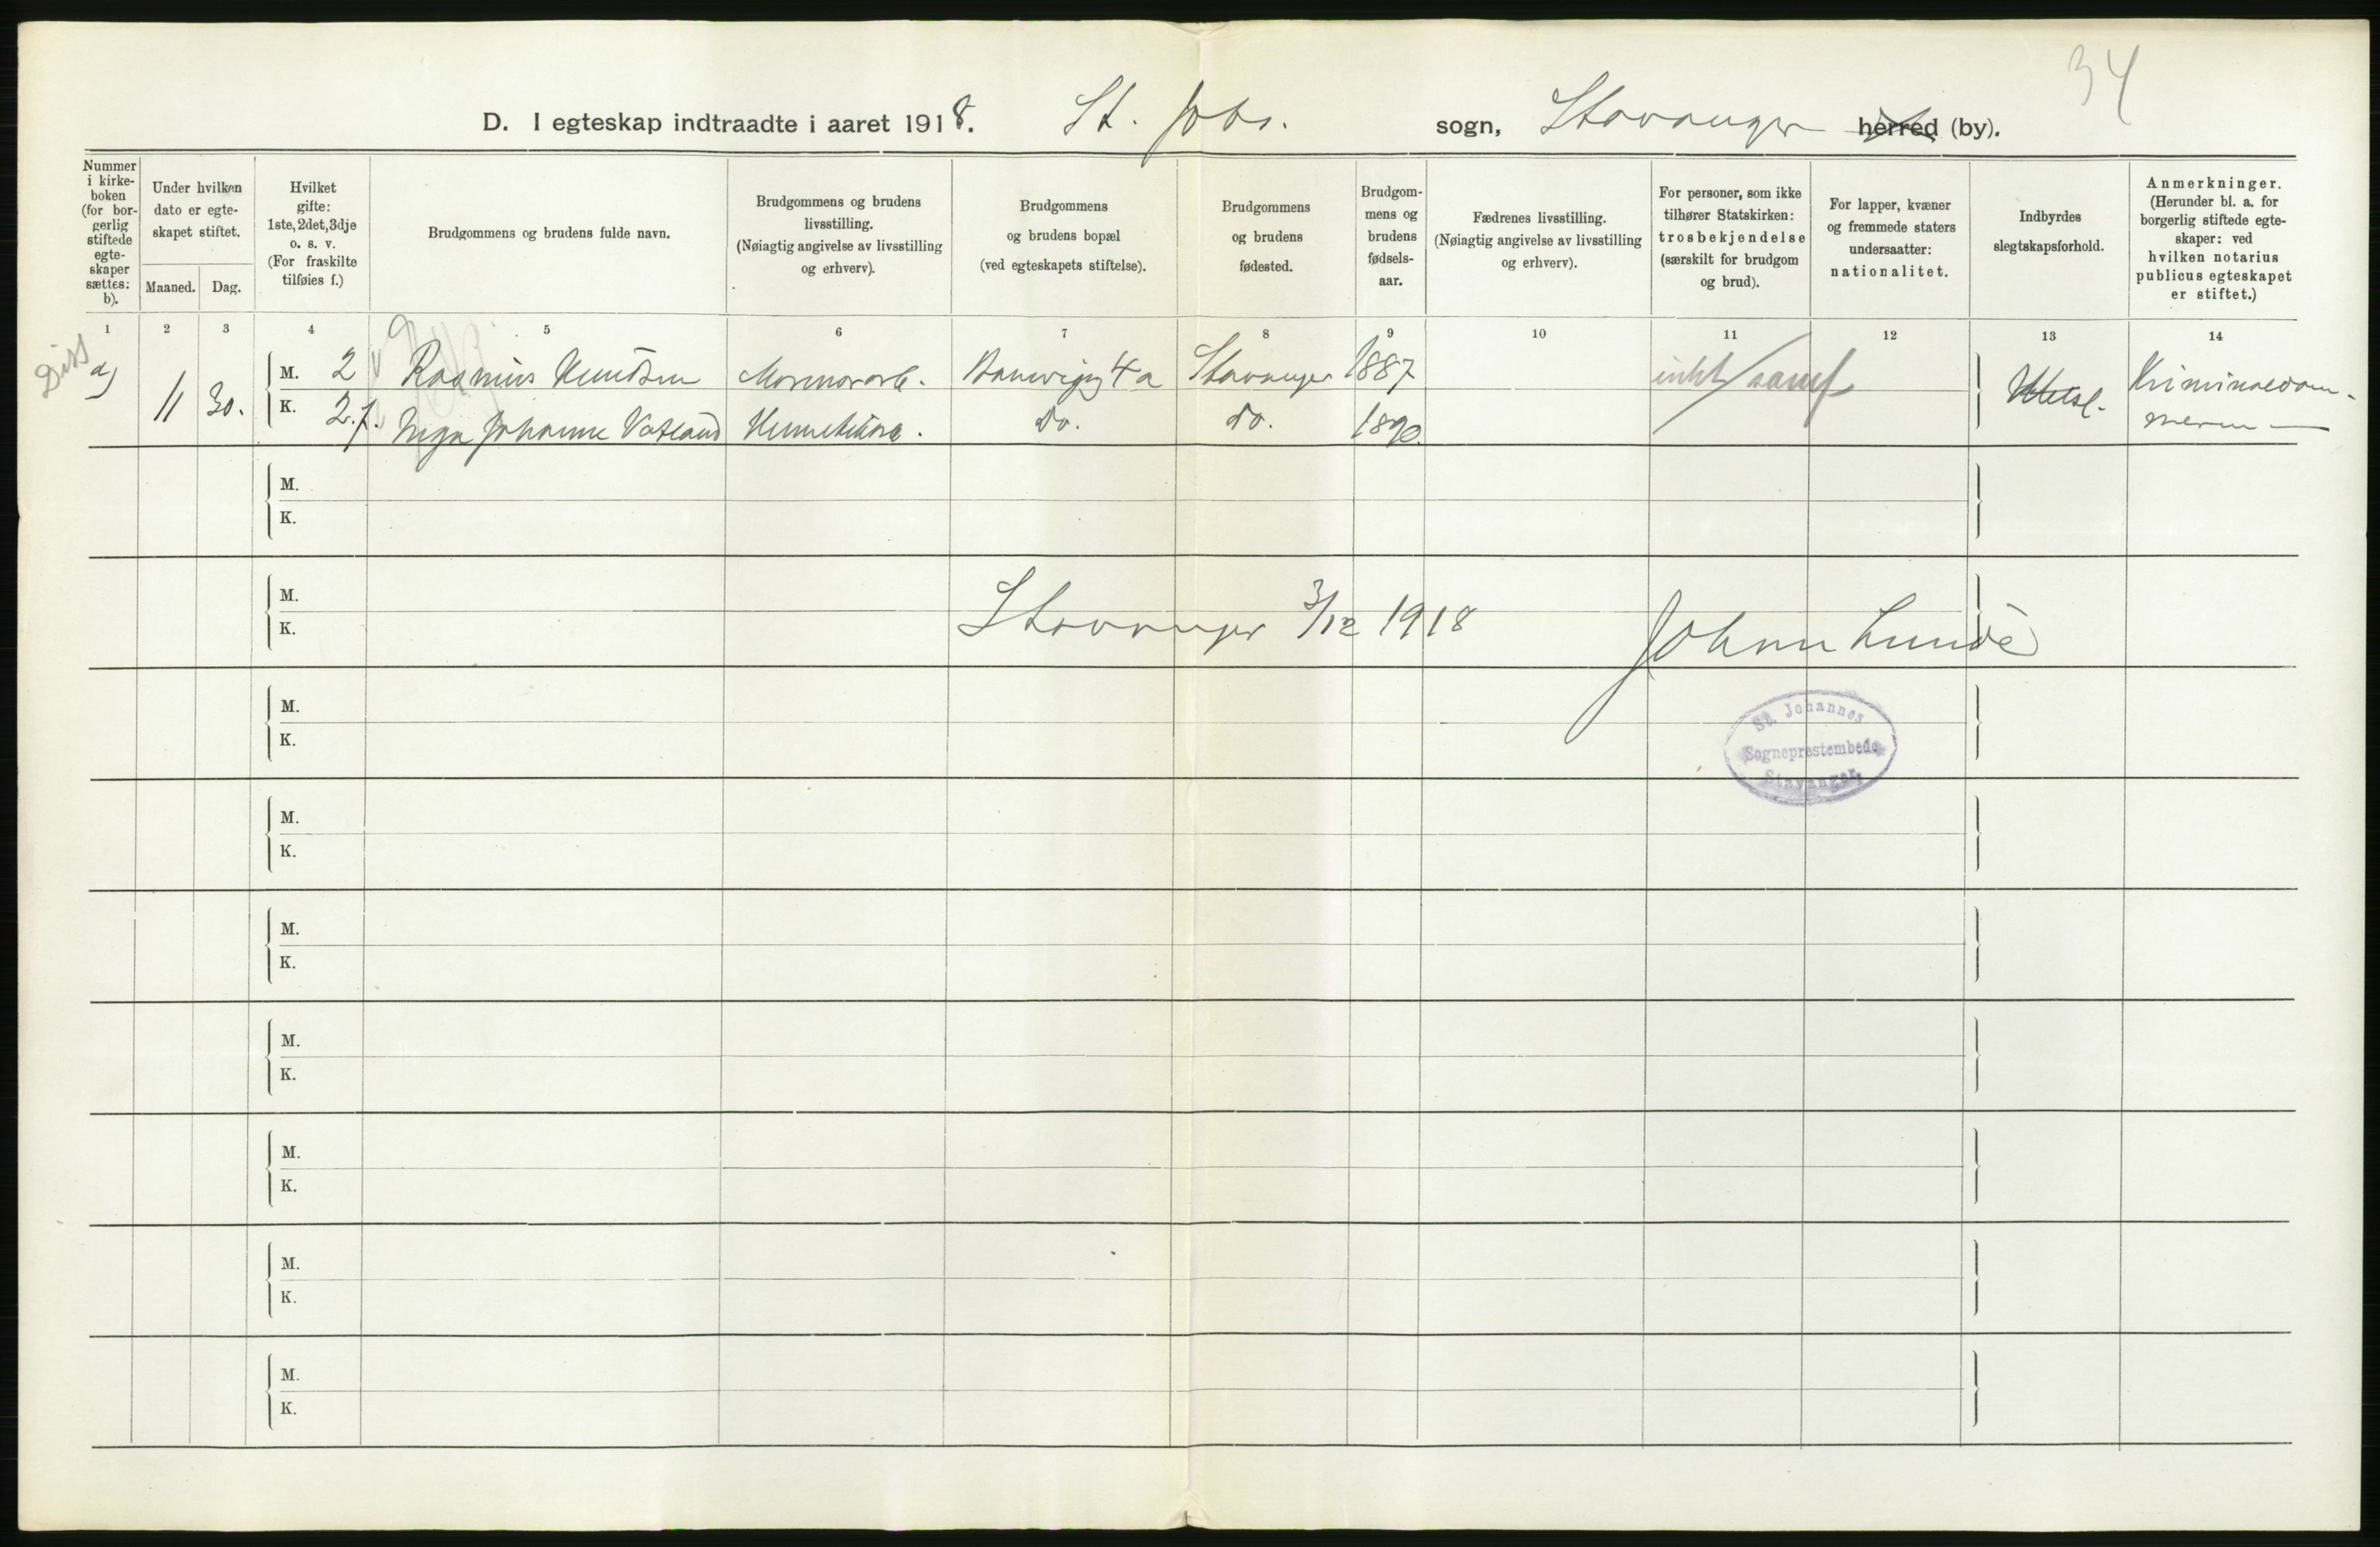 34
D. I egteskap indtraadte i aaret 1918. St. Johs. sogn, Stavanger herred (by).
Nummer i kirke-boken (for bor-gerlig stiftede egte-skaper sættes: b).
Under hvilken dato er egte-skapet stiftet.
Maaned. Dag.
Hvilket gifte: 1ste, 2det, 3dje o. s. v. (For fraskilte tilføies f.)
Brudgommens og brudens fulde navn.
Brudgommens og brudens livsstilling. (Nøiagtig angivelse av livsstilling og erhverv).
Brudgommens og brudens bopæl (ved egteskapets stiftelse).
Brudgommens og brudens fødested.
Brudgom-mens og brudens fødsels-aar.
Fædrenes livsstilling. (Nøiagtig angivelse av livsstilling og erhverv).
For personer, som ikke tilhører Statskirken: trosbekjendelse (særskilt for brudgom og brud).
For lapper, kvæner og fremmede staters undersaatter: nationalitet.
Indbyrdes slegtskapsforhold.
Anmerkninger. (Herunder bl. a. for borgerlig stiftede egte-skaper: ved hvilken notarius publicus egteskapet er stiftet.)
1 2 3 4 5 6 7 8 9 10 11 12 13 14
Diss
11 30.
M. 2 Rasmus Knudsen Marmorarb. 4a Stavanger 1887
K. 2.f. Inga Johanne Vatland do. do. 1890.
M.
K.
M.
K.
Stavanger 3/12 1918 Johan Lunde
M.
K.
St. Johannes
Sogneprestembede
Stavanger.
M.
K.
M.
K.
M.
K.
M.
K.
M.
K.
M.
K.